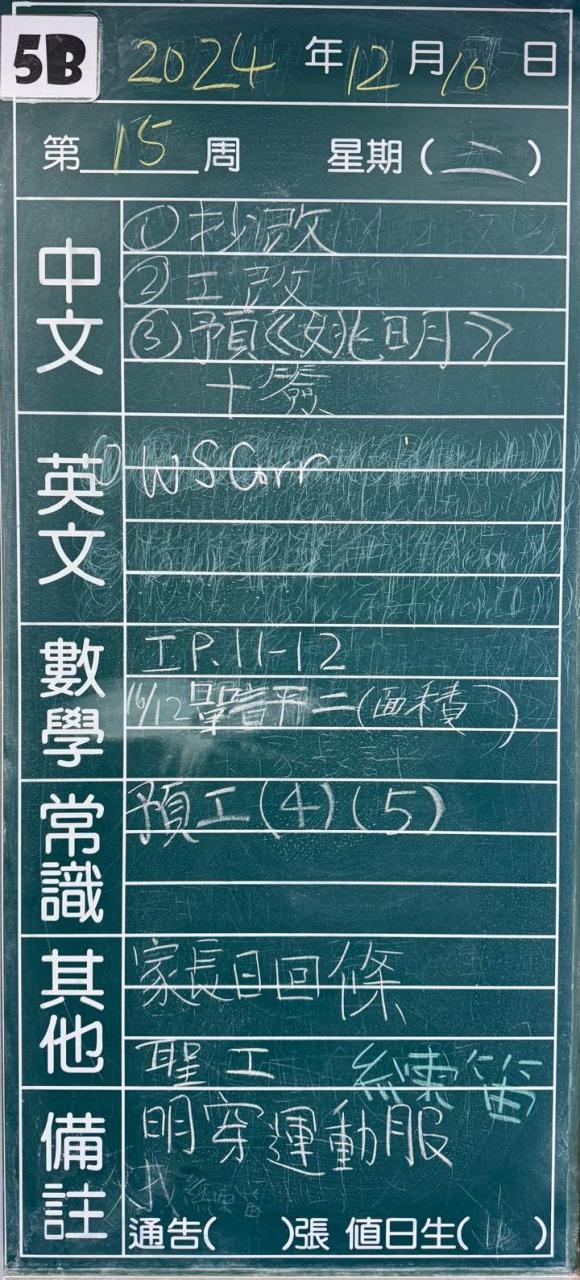 5B 2024年12月10日
第15周 星期(二)
中文
① 抄改
② 工改
③ 預《姚明》
十簽
英文
① WS Grr
數學
工P.11-12
16/12 單評二(面積)
常識
預工(4)(5)
其他
家長日回條
聖工 練笛
備註
明穿運動服
通告( )張 值日生( )